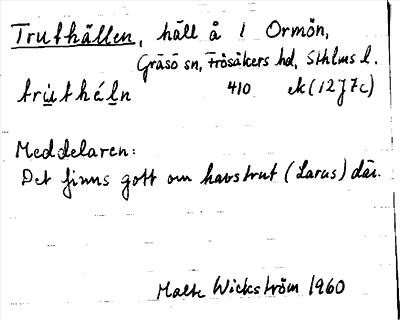 Truthällen, häll å 1 Ormön,
Gräsö sn, Frösåkers hd, Sthlms l.
trụthéḷn 410 ek (12J7c)
Meddelaren:
Det finns gott om havstrut (Larus) där.
Malte Wickström 1960